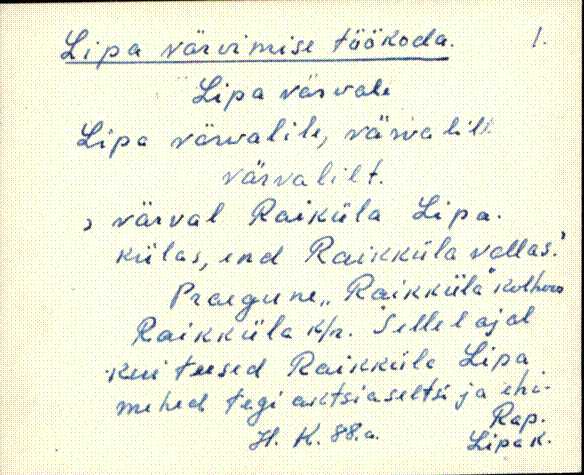 Lipa värvimise töökoda. 1.
Lipa värvale
Lipa värvalile, värvalilt
värvalilt.
, värval Raiküla Lipa.
külas, end Raikküla vallas.
Praegune „Raikküla" kolhoos
Raikküla k/n. Sellel ajal
kui teised Raikküla Lipa
mehed tegi aktsiaseltsi ja ehi-
Rap.
H. K. 88.a. Lipa k.